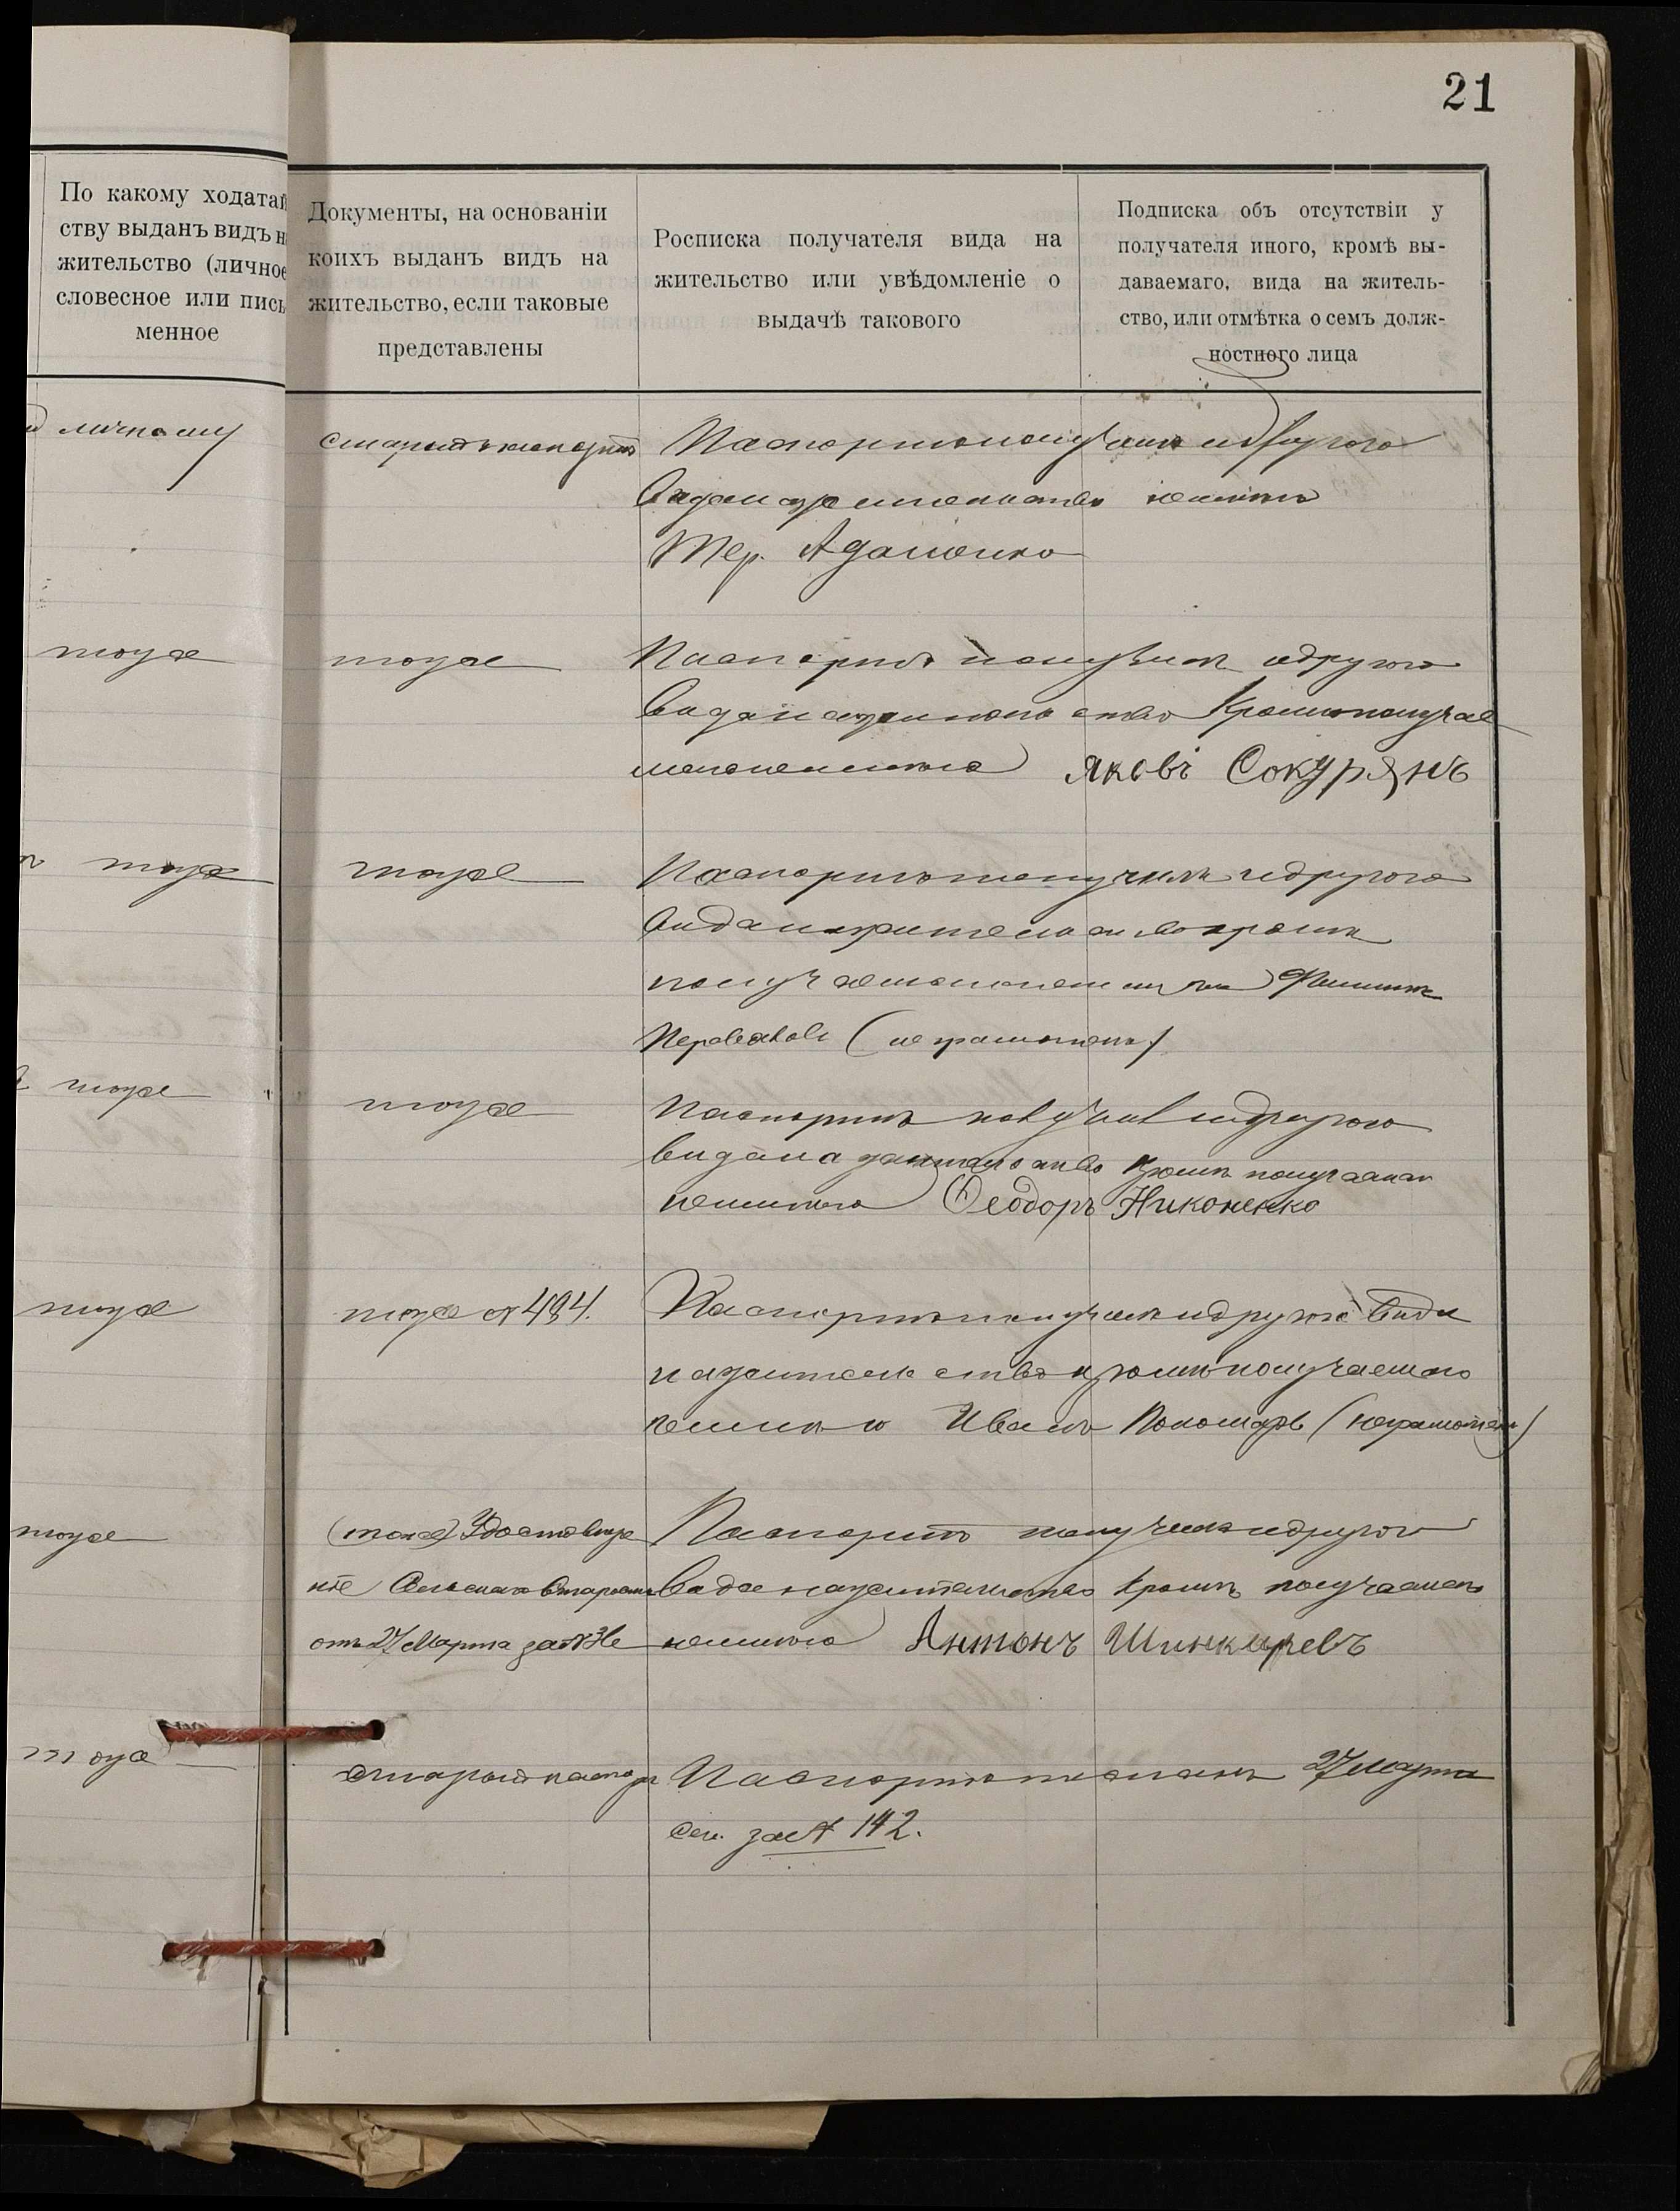 21
По какому ходатай
ству выданъ видъ н
жительство (личное
словесное или пись
менное
Документы, на основаніи
коихъ выданъ видъ на
жительство, если таковые
представлены
Росписка получателя вида на
жительство или увѣдомленіе о
выдачѣ такового
Подписка объ отсутствіи у
получателя иного, кромѣ вы-
даваемаго, вида на житель-
ство, или отмѣтка о семъ долж-
ностного лица
личному
старый паспортъ
Паспортъ получилъ и другого
вида на жительство неимѣю
Тер.
тоже
тоже
Паспортъ получилъ и другого
вида на жительство Кромѣ получае
маго неимѣю Яковъ Сокурянъ
тоже
тоже
Паспортъ получилъ и другого
вида на жительство кромѣ
получаемаго неимѣю
(неграмотенъ)
тоже
тоже
Паспортъ получилъ и другого
вида на жительство Кромѣ получаемаго
неимѣю Ѳеодоръ Никоненко
тоже
тоже № 494.
Паспортъ получилъ и другого вида
на жительство кромѣ получаемаго
неимѣю Иванъ Пономарь (неграмотенъ)
тоже
(тоже) Удостовѣре
ніе Сельскаго Старосты
отъ 27 Марта за №
Паспортъ получилъ и другого
вида на жительство Кромѣ получаемаго
неимѣю Антонъ Шинкаревъ
тоже
старый паспор
Паспортъ посланъ 27 Марта
сег. за № 142.